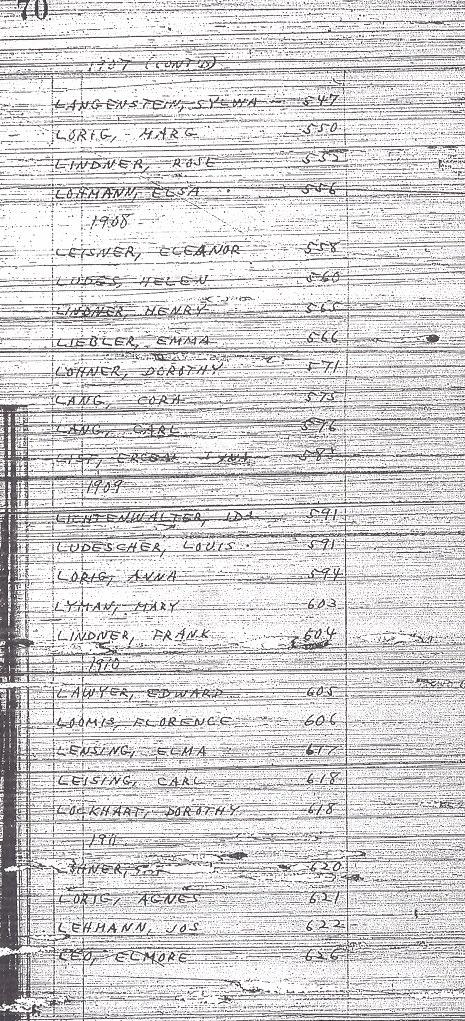 70
1907 (CONT'D)
LANGENSTEIN, SYLVIA 547
LORIG, MARG 550
LINDNER, ROSE 552
LOHMANN, ELSA 556
1908
LEISNER, ELEANOR 558
LUDES, HELEN 560
LINDNER, HENRY 565
LIEBLER, EMMA 566
LOHNER, DOROTHY 571
LANG, CORA 575
LANG, CARL 576
LIST,
1909
LICHTENWALTER, IDA 591
LUDESCHER, LOUIS 591
LORIG, ANNA 594
LYMAN, MARY 603
LINDNER, FRANK 604
1910
LAWYER, EDWARD 605
LOOMIS, FLORENCE 606
LENSING, ELMA 617
LEISING, CARL 618
LOCKHART, DOROTHY 618
1911
620
LORIG, AGNES 621
LEHMANN, JOS 622
LEO, ELMORE 626